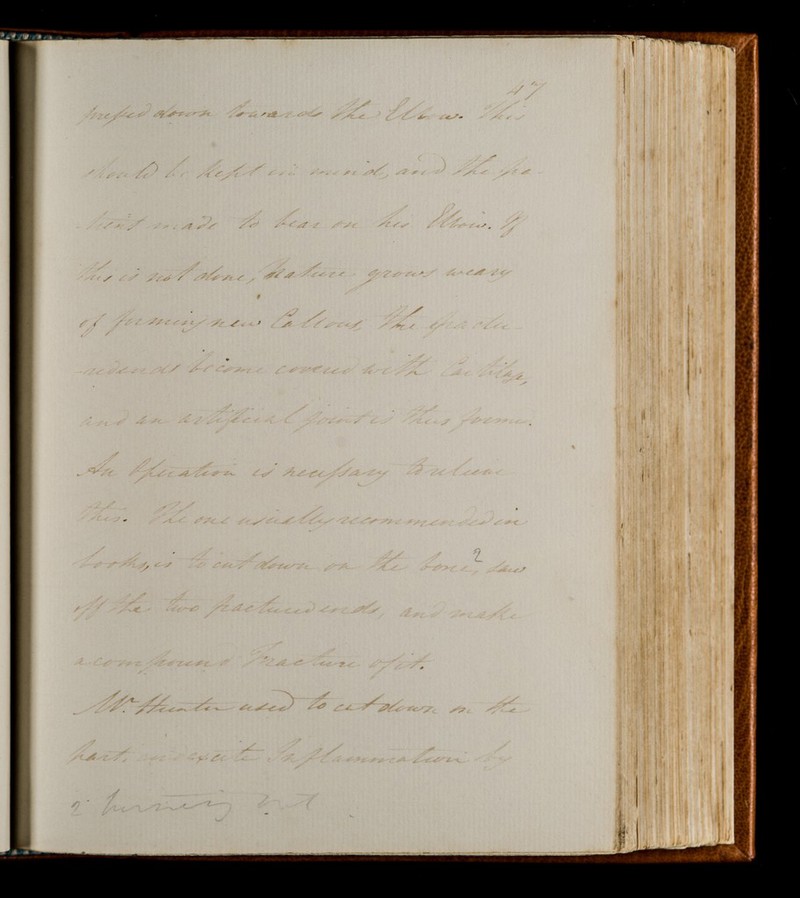 47
pressed down towards the Elbow. This
should be kept in mind, and the pa-
-tient made to bear on his Elbow. If
this is not done, Nature grows weary
of forming new Callous, the fractu-
-red ends become covered with Cartilage,
and an artificial joint is thus form
An Operation is necessary to relieve
this. The one usually recommended in
books, is to cut down on the bone, ? saw
off the two fractured ends, and make
a compound Fracture of it.
Mr. Hunter used to cut down on the
part, excite Inflammation by